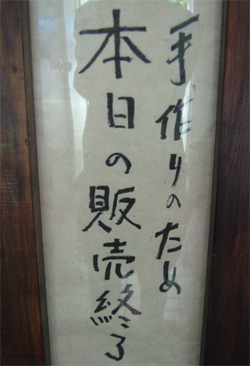 手作りのため
本日の販売終了